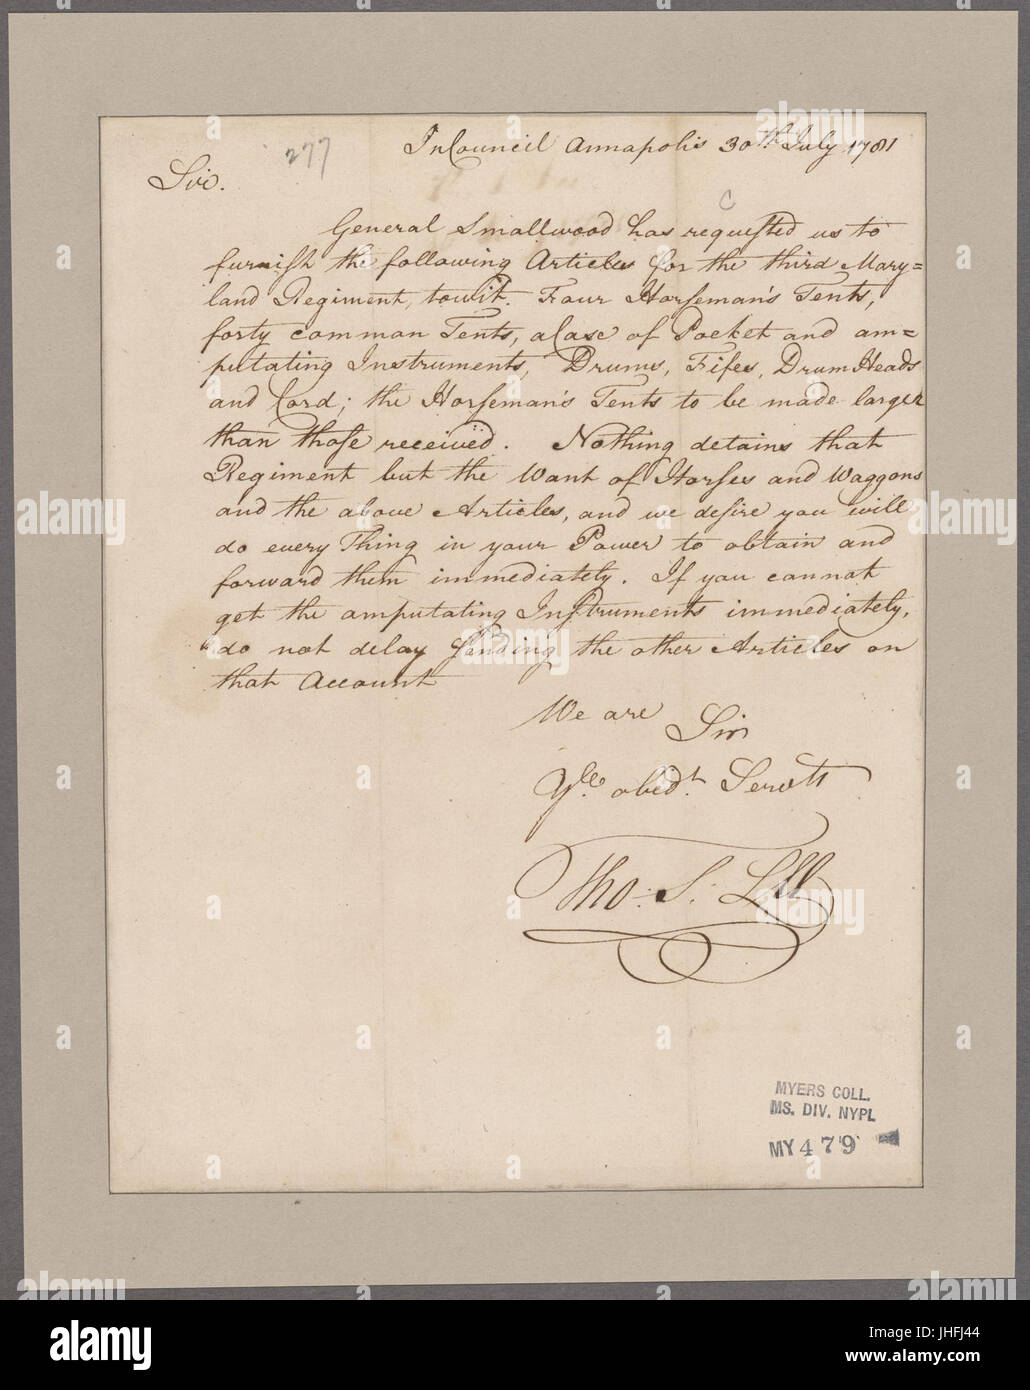 In Council Annapolis 30th July 1781
277
Sir.
C
General Smallwood has requested us to
furnish the following Articles for the third Mary=
land Regiment, towit. Four Horseman's Tents,
forty common Tents, a Case of Pocket and am=
putating Instruments, Drums, Fifes, Drum Heads
and Cord; the Horseman's Tents to be made larger
than those received. Nothing detains that
Regiment but the Want of Horses and Waggons
and the above Articles, and we desire you will
do every Thing in your Power to obtain and
forward them immediately. If you cannot
get the amputating Instruments immediately,
do not delay sending the other Articles on
that Account
We are Sir
obedt. Servts
Tho: S: Lee
MYERS COLL.
MS. DIV. NYPL
MY 479
alamy
Image ID: JHFJ44
www.alamy.com